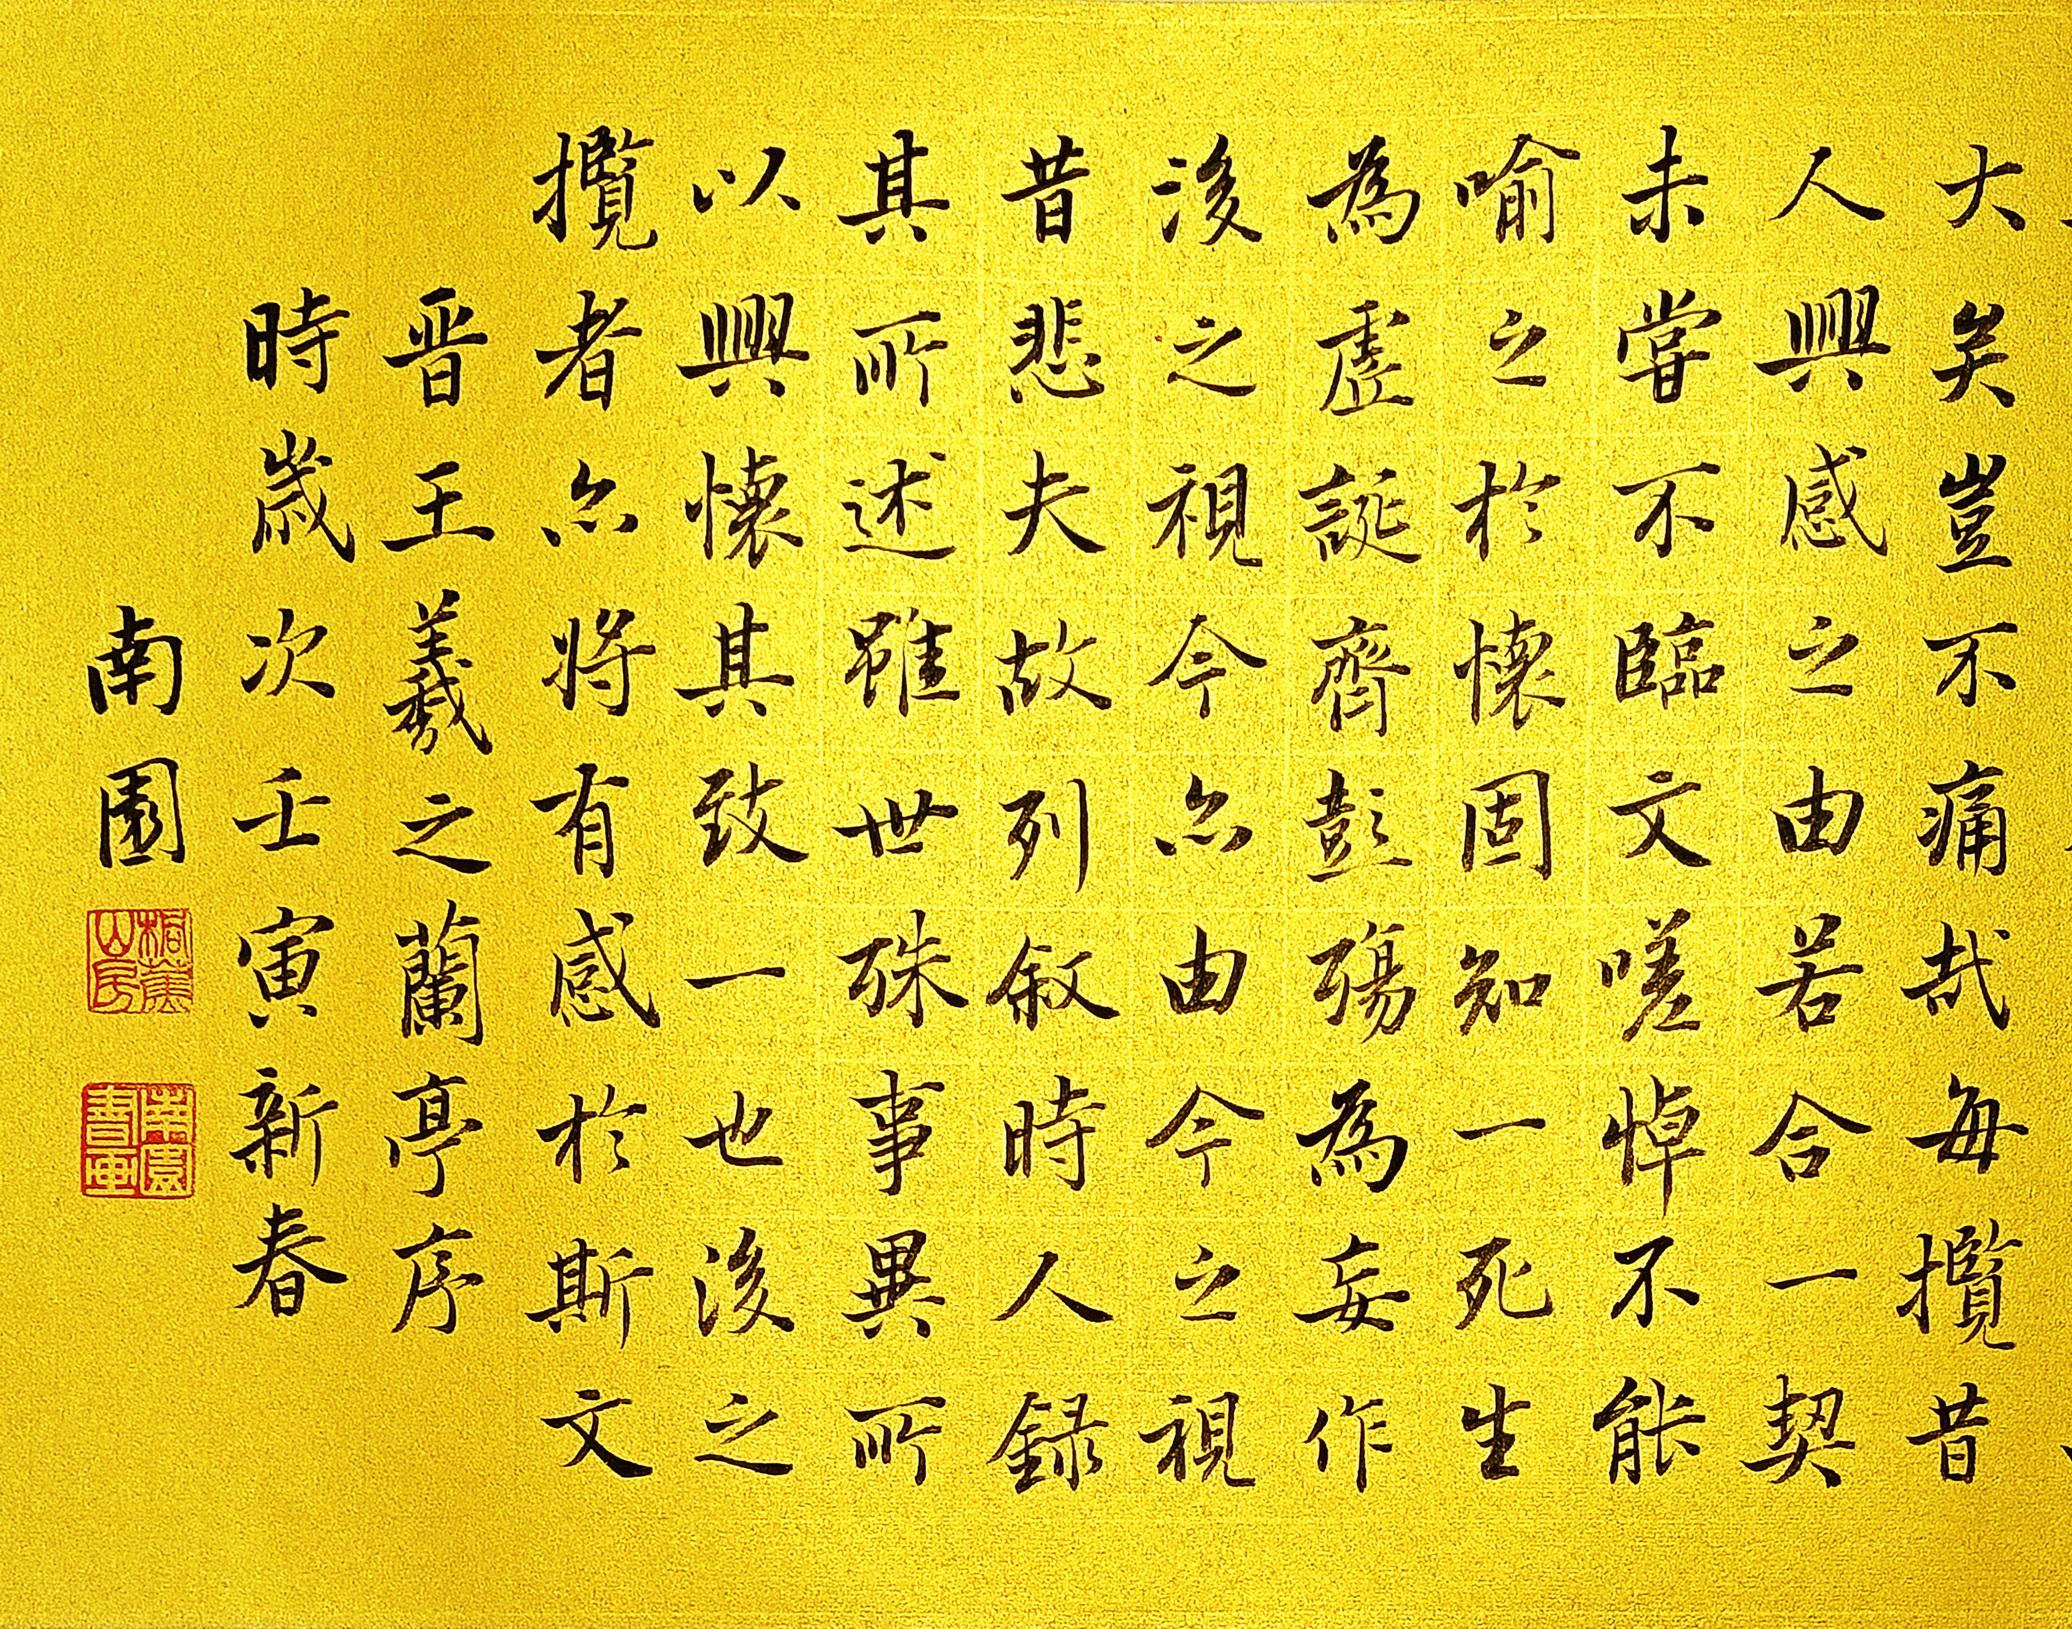 大矣豈不痛哉每攬昔
人興感之由若合一契
未嘗不臨文嗟悼不能
喻之於懷固知一死生
為虛誕齊彭殤為妄作
後之視今亦由今之視
昔悲夫故列敘時人錄
其所述雖世殊事異所
以興懷其致一也後之
攬者亦將有感於斯文
晋王羲之蘭亭序
時歲次壬寅新春
南園